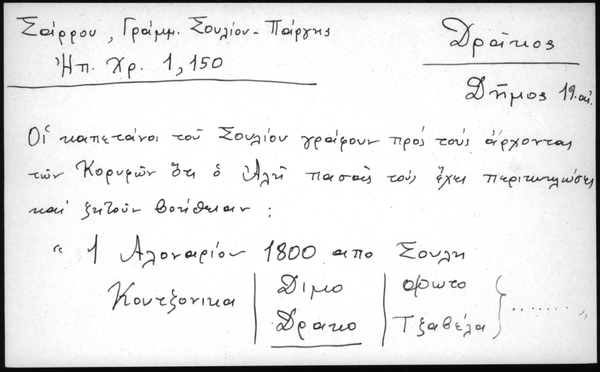 Σάρρου, Γράμμ. Σουλίου - Πάργης
Ἠπ. Χρ. 1, 150
Δράκος
Δῆμος 19. αἰ.
Οἱ καπετάνοι τοῦ Σουλίου γράφουν πρός τούς ἄρχοντας
τῶν Κορυφῶν ὅτι ὁ Ἀλῆ πασᾶς τούς ἔχει περικυκλώσει
καί ζητοῦν βοήθειαν :
" 1 Αλοναρίου 1800 απο Σουλη
Κουτζονικα | Διμο | Φωτο
Δρακο | Τζαβέλα } ....... "